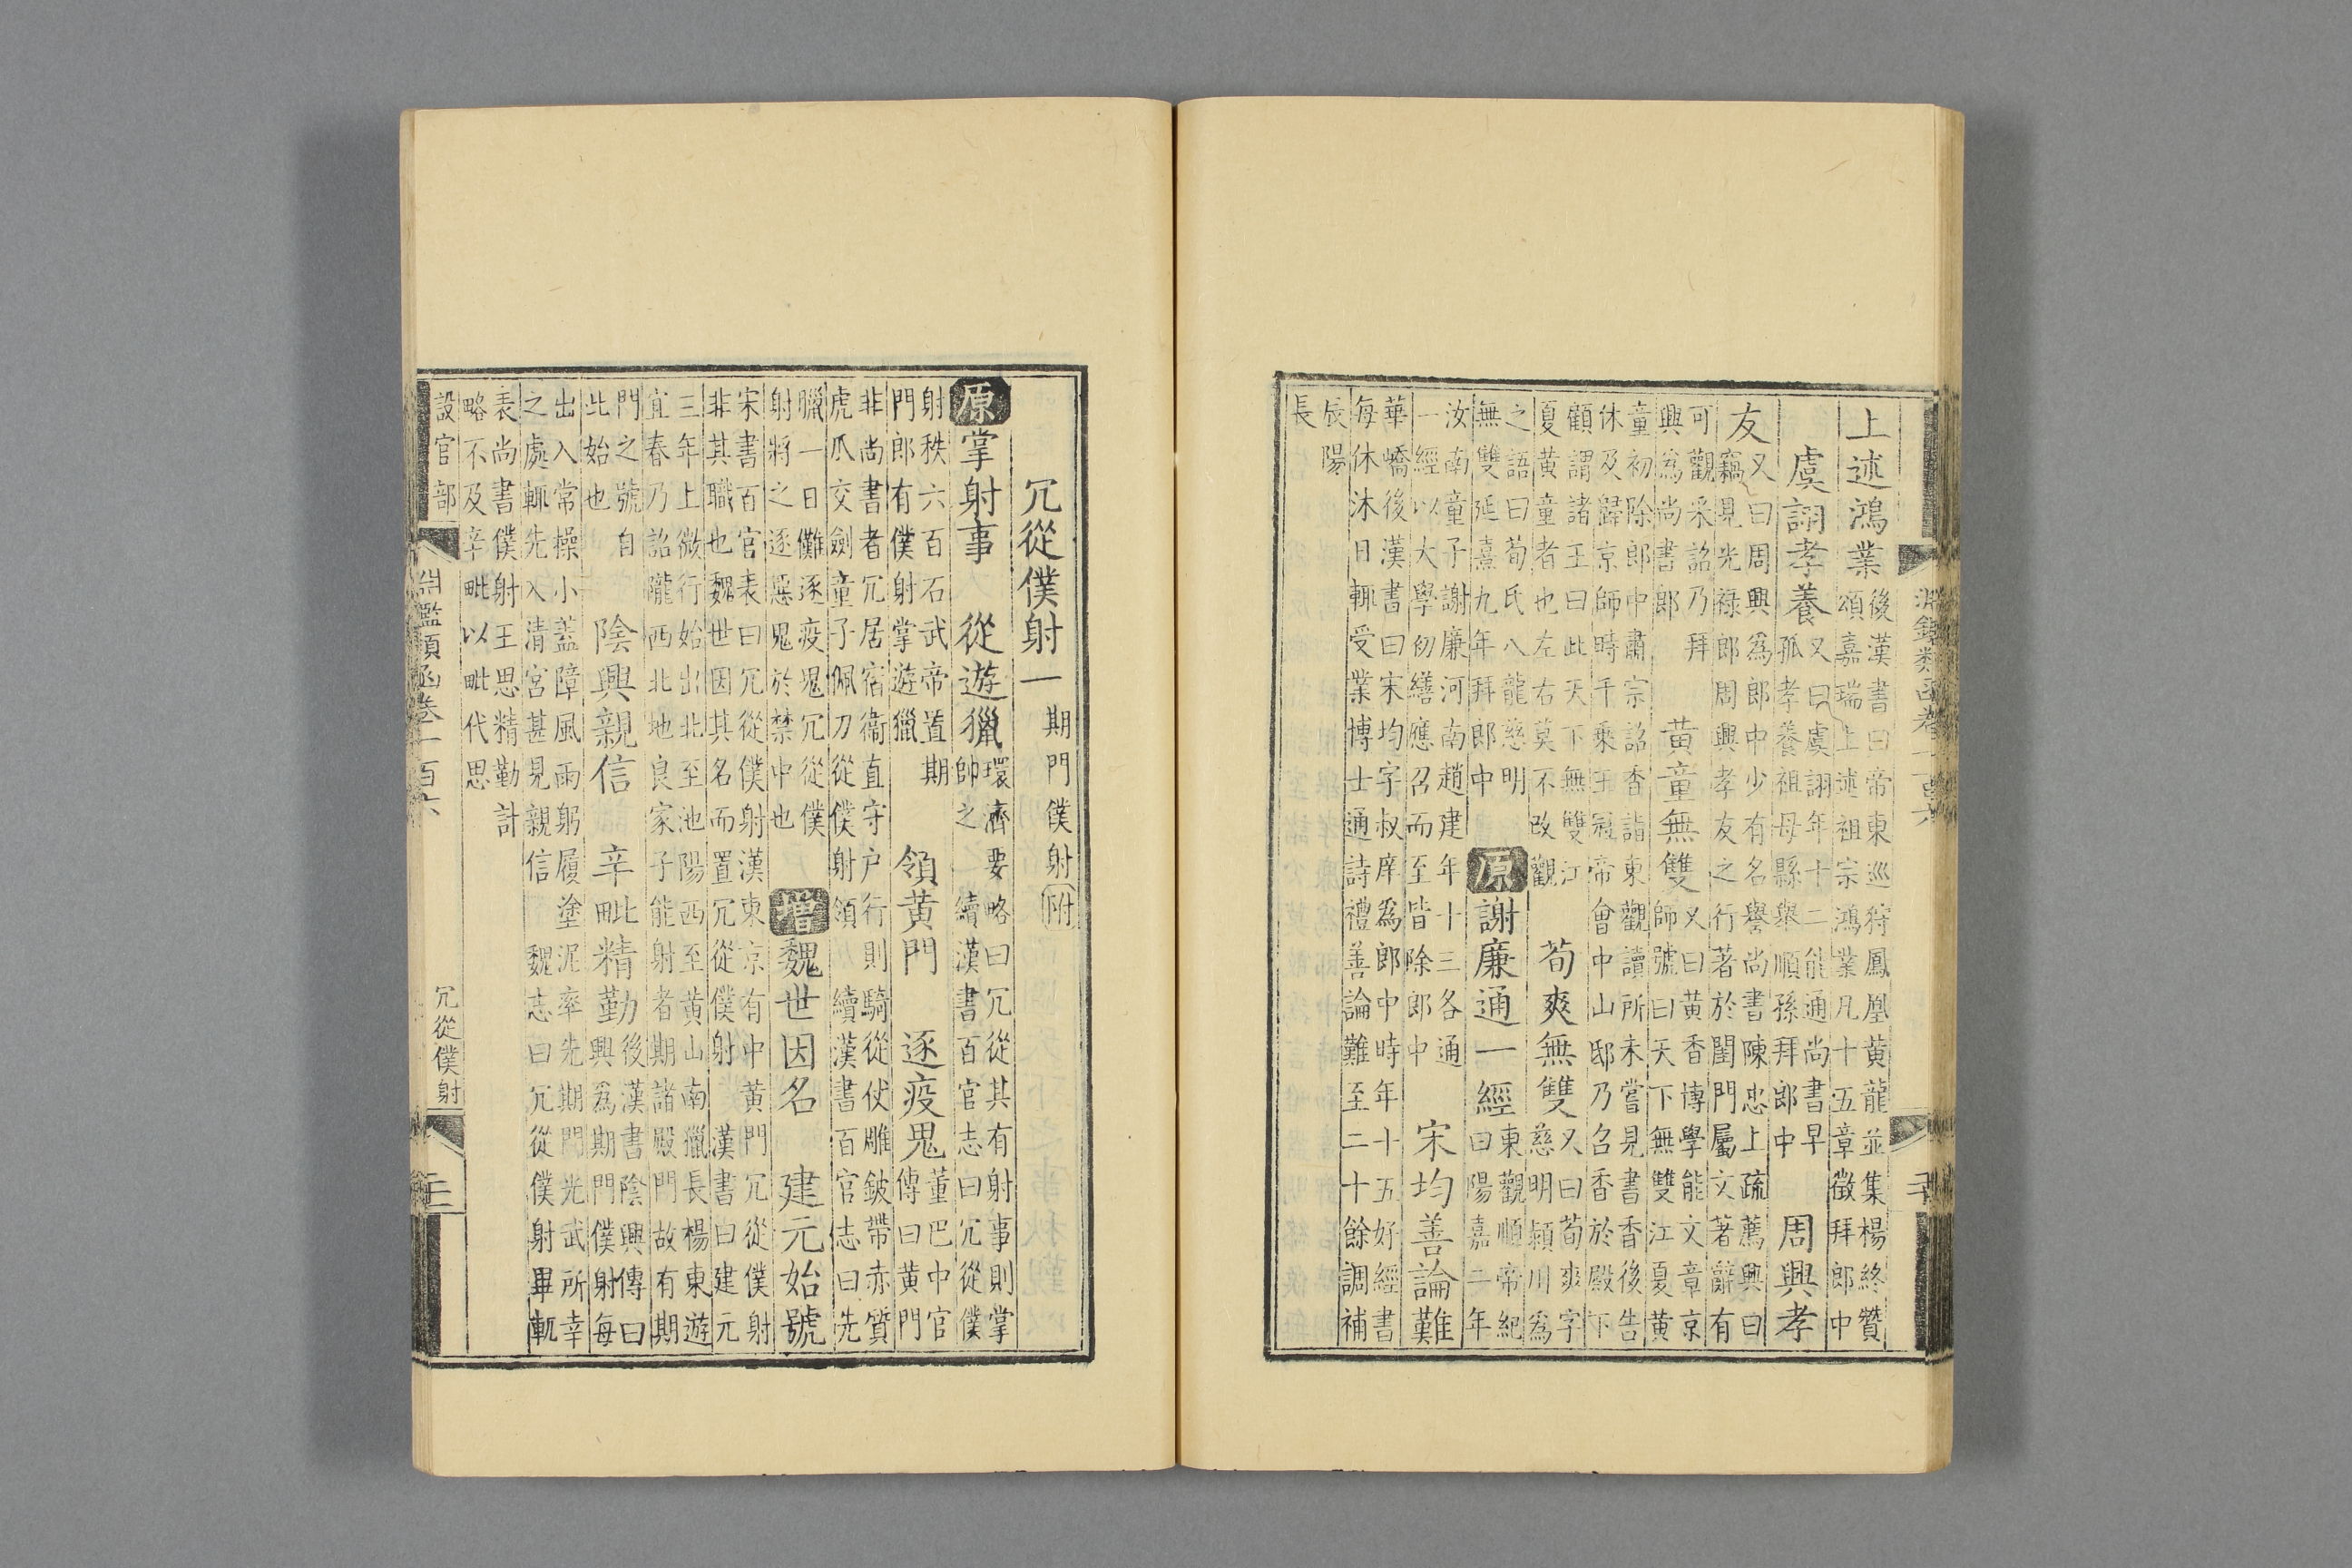 上述鴻業
後漢書曰帝東巡狩鳳凰黃龍並集楊終贊
頌嘉瑞上述祖宗鴻業凡十五章徵拜郎中
虞詡孝養
又曰虞詡年十二能通尚書早
孤孝養祖母縣舉順孫拜郎中
周興孝
友
又曰周興爲郎中少有名譽尚書陳忠上疏薦興曰
竊見光祿郎周興孝友之行著於閨門屬文著辭有
可觀采詔乃拜
興爲尚書郎
黃童無雙
又曰黃香博學能文章京
師號曰天下無雙江夏黃
童初除郎中肅宗詔香詣東觀讀所未嘗見書香後告
休及歸京師時千乘王冠帝會中山邸乃召香於殿下
顧謂諸王曰此天下無雙江
夏黃童者也左右莫不改觀
荀爽無雙
又曰荀爽字
慈明潁川爲
之語曰荀氏八龍慈明
無雙延熹九年拜郎中
原謝廉通一經
東觀順帝紀
曰陽嘉二年
汝南童子謝廉河南趙建年十三各通
一經以大學初繕應召而至皆除郎中
宋均善論難
華嶠後漢書曰宋均字叔庠爲郎中時年十五好經書
每休沐日輒受業博士通詩禮善論難至二十餘調補
辰陽
長
冗從僕射一 期門僕射附
原掌射事 從遊獵
環濟要略曰冗從其有射事則掌
帥之 續漢書百官志曰冗從僕
射秩六百石武帝置期
門郎有僕射掌遊獵
領黃門 逐疫鬼
董巴中官
傳曰黃門
非尚書者冗居宿衞直守户行則騎從仗雕鈹帶赤質
虎爪交劍童子佩刀從僕射領 續漢書百官志曰先
臘一日儺逐疫鬼冗從僕
射將之逐惡鬼於禁中也
增魏世因名 建元始號
宋書百官表曰冗從僕射漢東京有中黃門冗從僕射
非其職也魏世因其名而置冗從僕射 漢書曰建元
三年上微行始出北至池陽西至黃山南獵長楊東遊
宜春乃詔隴西北地良家子能射者期諸殿門故有期
門之號自
此始也
陰興親信 辛毗精勤
後漢書陰興傳曰
興爲期門僕射每
出入常操小蓋障風雨躬履塗泥率先期門光武所幸
之處輒先入清宮甚見親信 魏志曰冗從僕射畢軌
表尚書僕射王思精勤計
略不及辛毗以毗代思
設官部
淵鑑類函卷一百六
冗從僕射